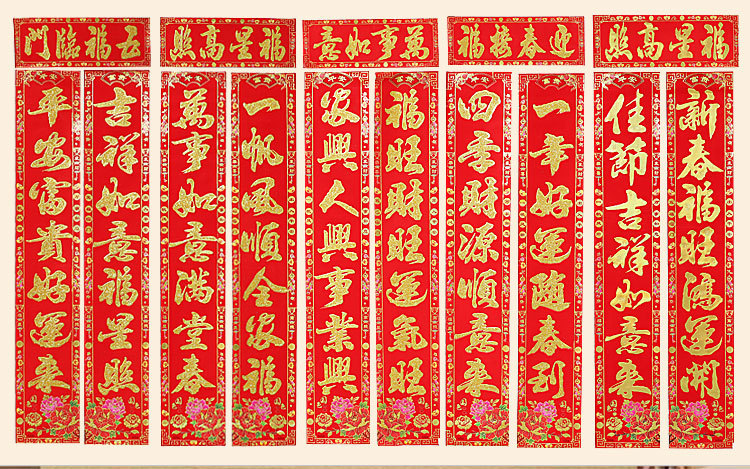 福星高照
新春福旺鸿運開
佳節吉祥如意来
迎春接福
一年好運随春到
四季財源順意来
萬事如意
福旺財旺運氣旺
家興人興事業興
福星高照
一帆風順全家福
萬事如意满堂春
五福臨門
吉祥如意福星照
平安富貴好運来